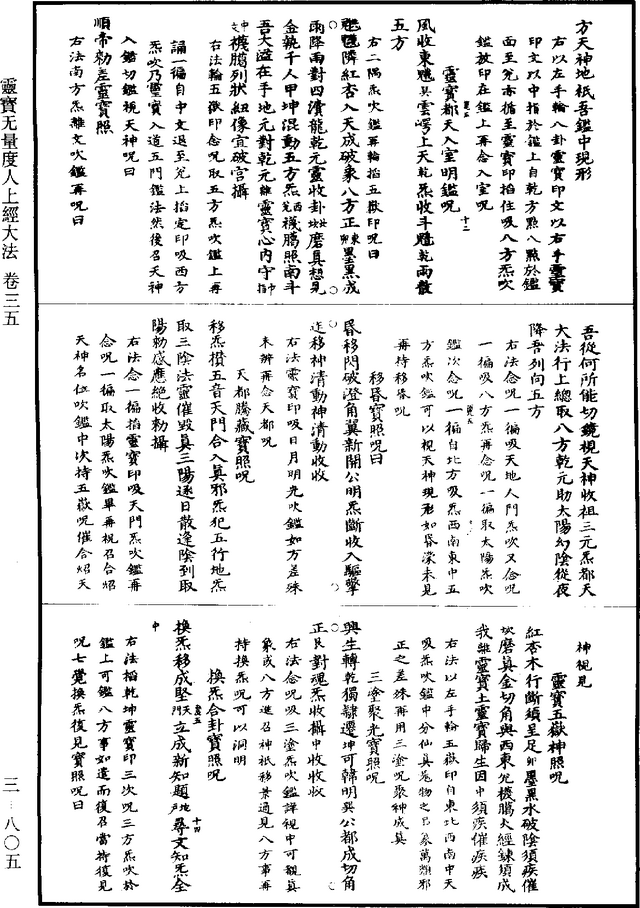 方天神地祇吾鑑中現形
右以左手輪八卦靈寶印文以右手靈寶
印文以中指於鑑上自乾方點八點於鑑
面至兌亦循至靈寶印掐住吸八方炁吹
鑑放印在鑑上再念入室呪
靈寶都天入室明鑑呪
風收東魒具雲崿上天乾炁收斗魓乾兩散
五方
右二隅炁吹鑑再輪掐五嶽印呪曰
魓魒隣紅杏入天成破泰八方正東卯墨黑成
雨降雨對四瀆龍乾元靈收卦 磨具想見
金甤千人甲坤混動五方炁兌西襪騰照南斗
吾大溢在手地元對乾元離靈寶心內守
襪膓列狀紐像宜破宮攝
右法輪五嶽印念呪取五方炁吹鑑上再
誦一徧自中文退至兌上掐定印吸西方
炁吹乃靈寶入道五門鑑法然後召天神
入鑑切鑑視天神呪曰
順帝勑差靈寶照
右法南方炁離文吹鑑再呪曰
吾從何所能切鏡視天神收祖三元炁都天
大法行上總取八方乾元助太陽幻陰從夜
降吾列向五方
右法念呪一徧吸天地人門炁吹又念呪
一徧吸八方炁再念呪一徧取太陽炁吹
鑑次念呪一徧自北方吸炁西南東中五
方炁吹鑑可以視天神現形如昏濛未見
再持移昏呪
移昏寶照呪曰
昏移閃破澄角冀新開公明炁斷收入驅擊
迄移神清動神清動收收
右法靈寶印吸日月明光吹鑑如方差殊
未辨再念天都呪
天都騰藏寶照呪
移炁攢五音天門合入真邪炁犯五行地炁
取三陰法靈催毀真三陽逐日散逢陰到取
陽勑感應絶收勑攝
右法念一徧掐靈寶印吸天門炁吹鑑再
念呪一徧取太陽炁吹鑑畢再視召合炤
天神名位吹鑑中次持五嶽呪催合炤天
神視見
靈寶五嶽神照呪
紅杏木行斷續呈足卯墨黑水破陰須疾催
坎磨具金切角與西東兌機騰火經鍊須成
我離靈寶土靈寶歸生因中須疾催疾疾
右法以左手輪五嶽印自東北西南中天
吸炁吹鑑中分仙真惡物之召象萬類邪
正之差殊再用三塗呪聚神成真
三塗聚光寶照呪
與生轉乾獨隸遷坤可韓明與公都成切角
正艮對魂炁收攝中收收收
右法念呪吸三塗炁吹鑑詳視中可覩真
象或八方進召神祇移景通見八方事再
持換炁呪可以洞明
換炁合卦寶照呪
換炁移成堅天門立成新知題地戶尋文知炁全
中
右法掐乾坤靈寶印三次呪三方炁吹於
鑑上可鑑八方事如遣而復召當持復見
呪七覺換炁復見寶照呪曰
靈寶无量度人上經大法 卷三五
三–八〇五